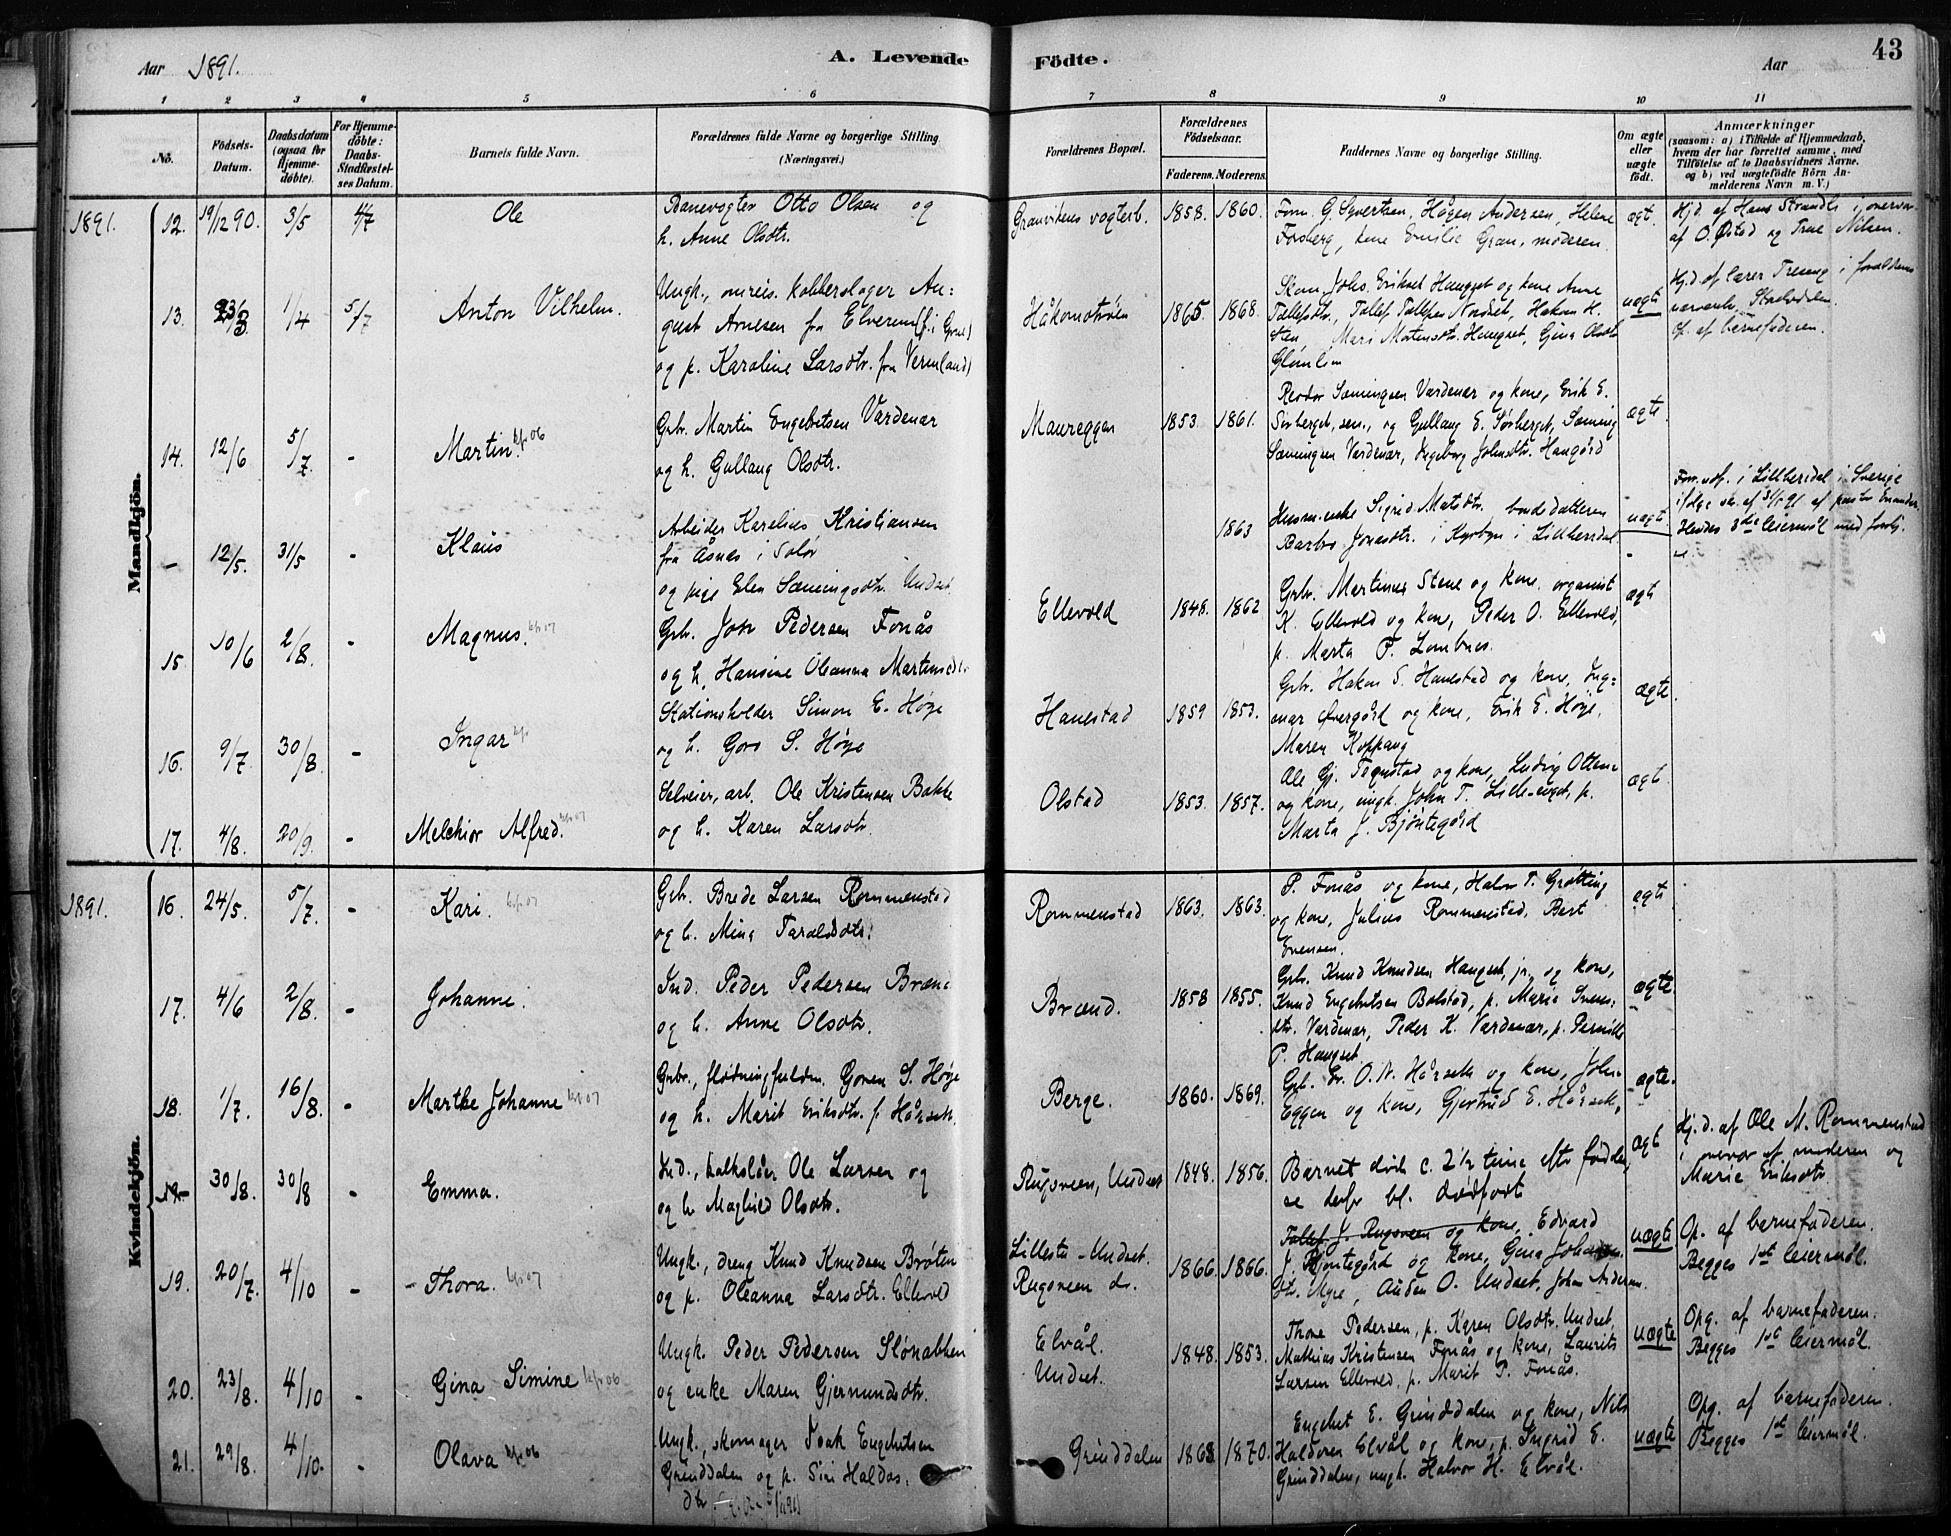 Aar 1891.
A. Levende
Födte.
Aar
43
1 2 3 4 5 6 7 8 9 10 11
No.
Födsels-
Datum.
Daabsdatum
(ogsaa for
Hjemme-
döbte).
For Hjemme-
döbte:
Daabs-
Stadfæstel-
ses Datum.
Barnets fulde Navn.
Forældrenes fulde Navne og borgerlige Stilling.
(Næringsvei.)
Forældrenes Bopæl.
Forældrenes
Födselsaar.
Faderens. Moderens.
Faddernes Navne og borgerlige Stilling.
Om ægte
eller
uægte
födt.
Anmærkninger
(saasom: a) i Tilfælde af Hjemmedaab,
hvem der har forrettet samme, med
Tilföielse af to Daabsvidners Navne,
og b) ved uægtefödte Börn An-
melderens Navn m. V.)
Mandkjön.
1891. 12. 19/12 90. 3/5 4/7 Ole
Banevogter Otto Olsen og
h. Anne Olsdtr.
Granvikens vogterb. 1858. 1860.
Forn. G. Syvertsen, Hågen Andersen, Helene
Forsberg, kone Emilie Gran, moderen.
ægt.
Hjd. af Hans Strandli i overvær
af O. Østad og Trine Nilsen.
13. 23/3 1/4 5/7 Anton Vilhelm.
Ungk., omreis. kobberslager Au=
gust Arnesen fra Elverum (f. i Grue)
og p. Karoline Larsdtr. fra Vermland
Håkonstrøen 1865. 1868.
Skom. Johs. Eriksen Haugset og kone Anne
Tollefsdtr., Tollef Tollefsen Nordset, Hakon H.
Sten, Mari Mortensdtr. Haugset, Gina Olsdtr.
Glomlien
uægte
Hjd. af lærer Treseng i forældrenes
nærværelse, Storelvdalen.
Op. af barnefaderen.
14. 12/6 5/7. - Martin. kfr 06
Grb. Martin Engebretsen Vardenær
og h. Gullaug Olsdtr.
Maureggen 1853. 1861.
Reodor Sæmingsen Vardenær og kone, Erik E.
Sørberget, sen., og Gullaug E. Sørberget, Sæming
Sæmingsen Vardenær, Ingeborg Johnsdtr. Haugård
ægte.
- 12/5. 31/5 - Klaus
Arbeider Karelius Kristiansen
fra Åsnes i Solør
og pige Elen Sæmingsdtr. Undset
1863
Husm.enke Sigrid Matsdtr. bondedatteren
Barbro Jonasdtr. i Kyrbyn i Lillherrdal.
uægt.
Forr. udf. i Lillherrdal i Sverige
ifølge sk. af 31/5 91 af pastor Enander.
Hendes 3die leiermål med forskj.
15. 10/6 2/8. - Magnus. kfr 07
Grb. Jon Pedersen Fonås
og h. Hansine Oleanna Martinsdtr
Ellevold 1848. 1862
Grb. Martinus Stene og kone, organist
K. Ellevold og kone, Peder O. Ellevold,
p. Marta P. Lombnes.
ægt
16. 9/7. 30/8. - Ingar kfr
Stationsholder Simon E. Høye
og h. Goro S. Høye
Hanestad 1859 1853.
Grb. Hakon S. Hanestad og kone, Ing=
mar Øvergård og kone, Erik E. Høye,
Maren Koppang
ægte.
17. 4/8. 20/9. - Melchior Alfred. kfr 07
Selveier, arb. Ole Kristensen Bakke
og h. Karen Larsdtr.
Olstad 1853. 1857.
Ole Gj. Tegnstad og kone, Ludvig Ottem
og kone, ungk. John T. Lille-enget, p.
Marta J. Bjøntegård
ægt.
Kvindekjön.
1891. 16. 24/5. 5/7. - Kari. kfr 07
Grb. Brede Larsen Rommenstad
og h. Mina Taraldsdtr.
Rommenstad 1863. 1863.
P. Fonås og kone, Halvor T. Grøtting
og kone, Julius Rommenstad, Bert
Evensen.
ægt.
17. 4/6 2/8. - Johanne.
Ind. Peder Pedersen Brænd
og h. Anne Olsdtr.
Brænd. 1858 1855.
Grb. Knud Knudsen Haugset, jr. og kone,
Knud Engebretsen Bolstad, p. Marie Svens-
dtr. Vardenær, Peder K. Vardenær, p. Pernille
P. Haugset.
ægte.
18. 1/7. 16/8. - Marthe Johanne kfr 07
Grbr., flødningfuldm. Goren S. Høye
og h. Marit Eriksdtr. f. Hårseth.
Berge. 1860. 1869.
Grb. Er. O. N. Hårseth og kone, John
Eggen og kone, Gjertrud E. Hårseth,
ægte.
19. 30/8. 30/8 - Emma.
Ind., kalkslåer Ole Larsen og
og h. Maghild Olsdtr.
Rugsveen, Undset 1848. 1856.
Barnet døde c. 2 1/2 time eftr fødsln,
se derfor bl. dødfødte
ægt
Hj. d. af Ole M. Rommenstad
i overvær af moderen og
Marie Eriksdtr.
19. 20/7. 4/10 - Thora. kfr 07
Ungk., dreng Knud Knudsen Bråten
og p. Oleanna Larsdtr. Ellevold
Lillestu-Undset.
Rugsveen do. 1866. 1866.
Tollef J. Rugsveen og kone, Edvard
J. Bjøntegård og kone, Gina Johannes
dtr. Myre, Auden O. Undset, John Andersen.
uægte
Op. af barnefaderen.
Begges 1ste leiermål.
20. 23/8. 4/10 - Gina Simine kfr 06
Ungk. Peder Pedersen Slønabben
og enke Maren Gjermundsdtr.
Elvål.
Undset. 1848. 1853.
Thore Pedersen, p. Karen Olsdtr. Undset,
Mathias Kristensen Fonås og kone, Laurits
Larsen Ellevold, p. Marit P. Fonås.
uægte
Opg. af barnefaderen.
Begges 1ste leiermål.
21. 29/8. 4/10. - Olava kfr 06
Ungk., skomager Isak Engebretsen
Grinddalen og p. Siri Haldos-
dtr.
Grinddalen 1868 1870.
Engebret E. Grinddalen og kone, Nils
Haldorsen Elvål og kone, p. Ingrid E.
Grinddalen, ungk. Halvor H. Elvål.
uægte
Opg. af barnefaderen.
Begges 1ste leiermål.